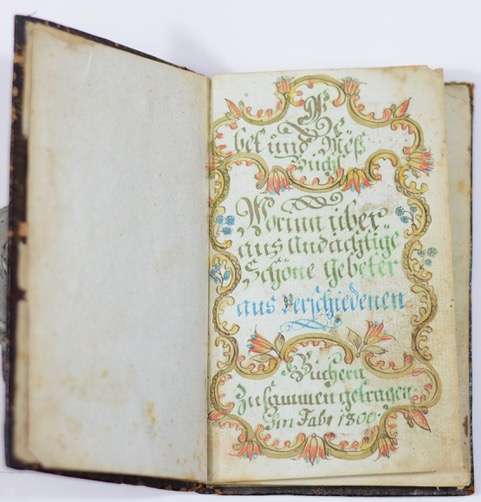 Ge
bet und Meß
Buch
Worinn über-
aus Andächtige
Schöne Gebeter
aus Verschiedenen
Büchern
Zusammen getragen
im Jahr 1800